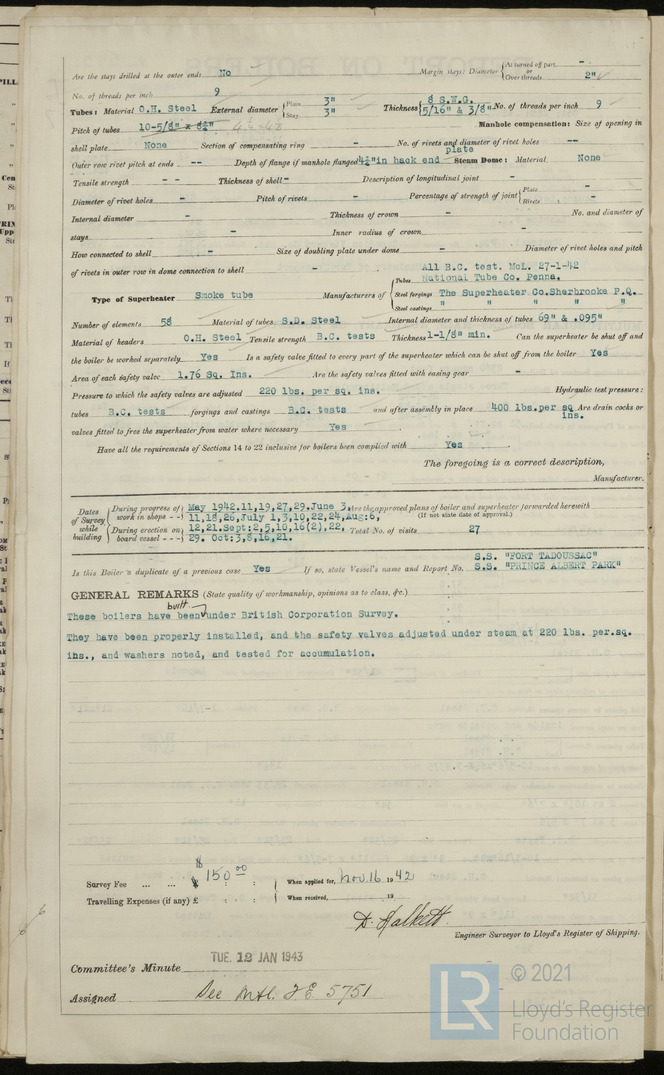 Are the stays drilled at the outer ends No Margin stays: Diameter { At turned off part. - or Over threads 2"
No. of threads per inch 9
Tubes: Material O.H. Steel External diameter { Plain 3" Stay 3" Thickness { 8 S.W.G. 5/16" & 3/8" No. of threads per inch 9
Pitch of tubes 10-5/8" x Manhole compensation: Size of opening in
shell plate None Section of compensating ring - No. of rivets and diameter of rivet holes --
Outer row rivet pitch at ends -- Depth of flange if manhole flanged 4½" in back end plate Steam Dome: Material None
Tensile strength -- Thickness of shell - Description of longitudinal joint -
Diameter of rivet holes - Pitch of rivets - Percentage of strength of joint { Plate - Rivets -
Internal diameter - Thickness of crown - No. and diameter of
stays - Inner radius of crown -
How connected to shell - Size of doubling plate under dome - Diameter of rivet holes and pitch
of rivets in outer row in dome connection to shell -
All B.C. test. McL. 27-1-42
Type of Superheater Smoke tube Manufacturers of { Tubes National Tube Co. Penna.
Steel forgings The Superheater Co. Sherbrooke P.Q.
Steel castings " " " "
Number of elements 58 Material of tubes S.D. Steel Internal diameter and thickness of tubes 69" & .095"
Material of headers O.H. Steel Tensile strength B.C. tests Thickness 1-1/8" min. Can the superheater be shut off and
the boiler be worked separately Yes Is a safety valve fitted to every part of the superheater which can be shut off from the boiler Yes
Area of each safety valve 1.76 Sq. Ins. Are the safety valves fitted with easing gear -
Pressure to which the safety valves are adjusted 220 lbs. per sq. ins. Hydraulic test pressure:
tubes B.C. tests forgings and castings B.C. tests and after assembly in place 400 lbs.per sq ins. Are drain cocks or
valves fitted to free the superheater from water where necessary Yes
Have all the requirements of Sections 14 to 22 inclusive for boilers been complied with Yes
The foregoing is a correct description,
Manufacturer.
Dates of Survey while building { During progress of work in shops - - May 1942.11,19,27,29.June 3, 11,18,26,July 1,3,10,22,24,Aug:6, Are the approved plans of boiler and superheater forwarded herewith (If not state date of approval.)
During erection on board vessel - - - 12,21.Sept:2,5,10,16(2),22, 29. Oct:3,8,16,21. Total No. of visits 27
Is this Boiler a duplicate of a previous case Yes If so, state Vessel's name and Report No. S.S. "FORT TADOUSSAC" S.S. "PRINCE ALBERT PARK"
GENERAL REMARKS (State quality of workmanship, opinions as to class, &c.)
These boilers have been built under British Corporation Survey.
They have been properly installed, and the safety valves adjusted under steam at 220 lbs. per.sq.
ins., and washers noted, and tested for accumulation.
Survey Fee ... ... $ 150.00 When applied for, Nov. 16 1942
Travelling Expenses (if any) £ : : When received, 19
D. Halkett.
Engineer Surveyor to Lloyd's Register of Shipping.
Committee's Minute TUE. 12 JAN 1943
Assigned See Mtl. J.E. 5751
LR © 2021
Lloyd's Register
Foundation